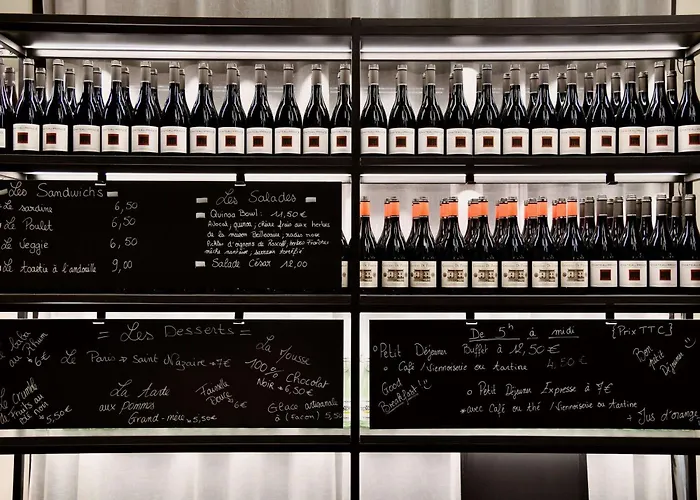 Les Sandwichs
Le sardine 6,50
Le Poulet 6,50
Le Veggie 6,50
Le toastie à l'andouille 9,00
Les Salades
Quinoa Bowl : 11,50€
Avocat, quinoa, chèvre frais aux herbes
de la maison
Salade César 12,00
= Les Desserts =
Le Paris → Saint Nazaire → 7€
La tarte
aux pommes
Grand-mère → 5,50€
6€
La Mousse
100% Chocolat
Noir → 6,50€
Glace artisanale
à (façon) 5,50€
6€
Crumble
5,50€
De 5h à midi {Prix TTC}
Petit Déjeuner Buffet à 12,50€
Café / Viennoiserie ou tartine 4,50€
Good
Breakfast!
Bon
petit
Déjeuner
Petit Déjeuner Expresse à 7€
avec Café ou thé / Viennoiserie ou tartine
+ Jus d'orange